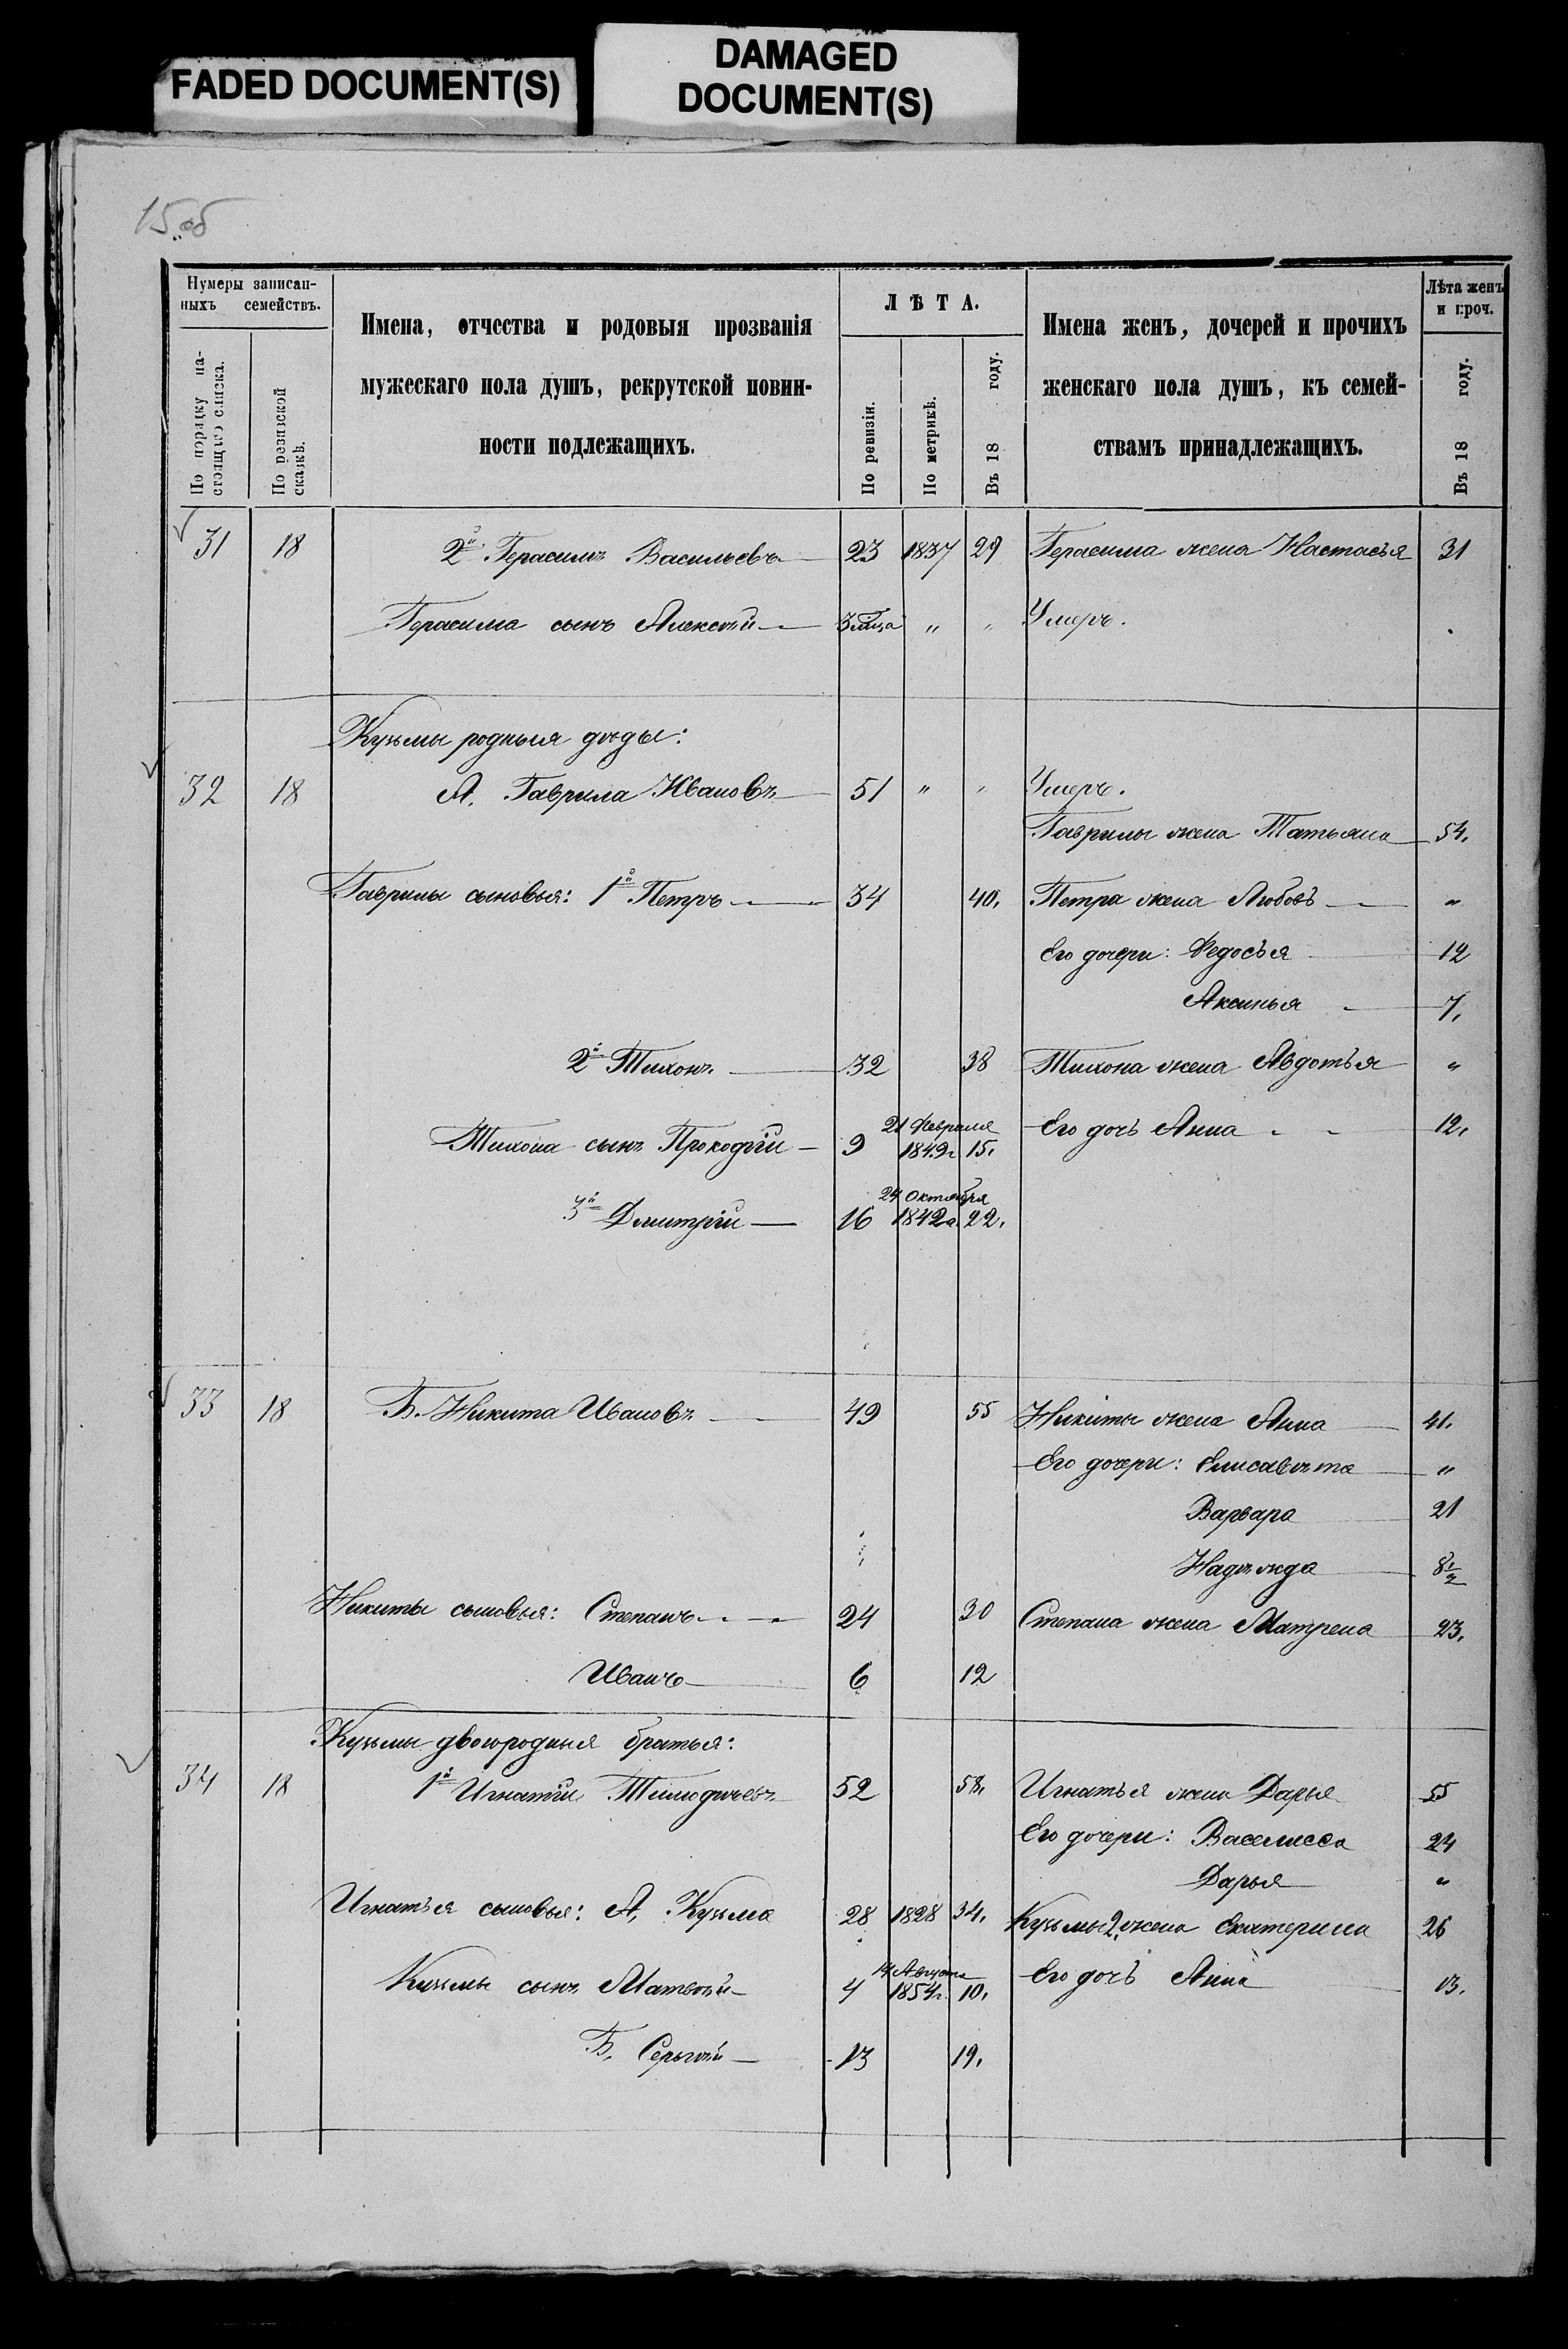 FADED DOCUMENT(S)
DAMAGED
DOCUMENT(S)
15 об
Нумеры записан-
ныхъ семействъ.
По порядку на-
стоящаго списка.
По ревизской
сказкѣ.
Имена, отчества и родовыя прозванія
мужескаго пола душъ, рекрутской повин-
ности подлежащихъ.
ЛѢТА.
По ревизіи.
По метрикѣ.
Въ 18 году.
Имена женъ, дочерей и прочихъ
женскаго пола душъ, къ семей-
ствамъ принадлежащихъ.
Лѣта женъ
и проч.
Въ 18 году.
31 18 2й Герасимъ Васильевъ 23 1837 29 Герасима жена Настасья 31
Герасима сынъ Алексѣй 3 мѣца " " Умеръ.
Кузьмы родныя дѣды:
32 18 А. Гаврила Ивановъ 51 " " Умеръ.
Гаврилы жена Татьяна 54.
Гаврилы сыновья: 1й Петръ 34 40. Петра жена Любовь "
Его дочери: Федосья 12
Аксинья 7.
2й Тихонъ 32 38 Тихона жена Авдотья "
Тихона сынъ Прокофій 9 21 Февраля 1849г. 15. Его дочь Анна 12.
3й Дмитрій 16 24 Октября 1842г. 22.
33 18 Б. Никита Ивановъ 49 55 Никиты жена Анна 41.
Его дочери: Елисавѣта "
Варвара 21
Надежда 8 1/2
Никиты сыновья: Степанъ 24 30 Степана жена Матрена 23.
Иванъ 6 12
Кузьмы двоюродныя братья:
34 18 1й Игнатій Тимофѣевъ 52 58. Игнатья жена Дарья 55
Его дочери: Васелисса 24
Дарья "
Игнатья сыновья: А, Кузьма 28 1828 34. Кузьмы 2. жена Екатерина 26
Кузьмы сынъ Матвѣй 4 Августа 1854г. 10. Его дочь Анна 13.
Б. Сергѣй 13 19.